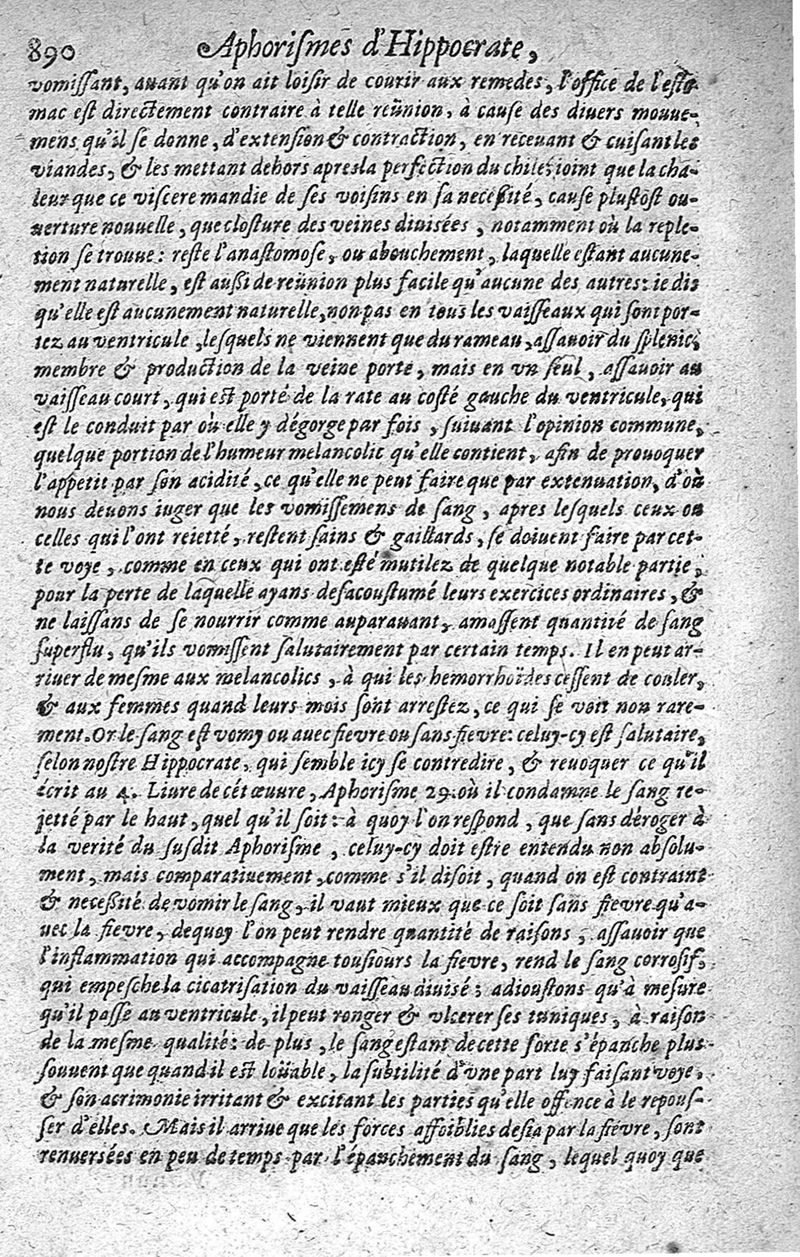 890 Aphoriſmes d'Hippocrate,
vomiſſant, auant qu'on ait loiſir de courir aux remedes, l'office de l'eſto-
mac eſt directement contraire à telle reünion, à cauſe des diuers mouue-
mens qu'il ſe donne, d'extenſion & contraction, en receuant & cuiſant les
viandes, & les mettant dehors apres la perfection du chile; joint que la cha-
leur que ce viſcere mandie de ſes voiſins en ſa neceſſité, cauſe pluſtoſt ou-
uerture nouuelle, que cloſture des veines diuisées, notamment où la reple-
tion ſe trouue: reſte l'anaſtomoſe, ou abouchement, laquelle eſtant aucune-
ment naturelle, eſt auſſi de reünion plus facile qu'aucune des autres: ie dis
qu'elle eſt aucunement naturelle, non pas en tous les vaiſſeaux qui ſont por-
tez au ventricule, leſquels ne viennent que du rameau, aſſauoir du ſplenic,
membre & production de la veine porte, mais en vn ſeul, aſſauoir au
vaiſſeau court, qui eſt porté de la rate au coſté gauche du ventricule, qui
eſt le conduit par où elle y dégorge par fois, ſuiuant l'opinion commune,
quelque portion de l'humeur melancolic qu'elle contient, afin de prouoquer
l'appetit par ſon acidité, ce qu'elle ne peut faire que par extenuation, d'où
nous deuons iuger que les vomiſſemens de ſang, apres leſquels ceux ou
celles qui l'ont reietté, reſtent ſains & gaillards, ſe doiuent faire par cet-
te voye, comme en ceux qui ont eſté mutilez de quelque notable partie,
pour la perte de laquelle ayans deſacouſtumé leurs exercices ordinaires, &
ne laiſſans de ſe nourrir comme auparauant, amaſſent quantité de ſang
ſuperflu, qu'ils vomiſſent ſalutairement par certain temps. Il en peut ar-
riuer de meſme aux melancolics, à qui les hemorrhoïdes ceſſent de couler,
& aux femmes quand leurs mois ſont arreſtez, ce qui ſe voit non rare-
ment. Or le ſang eſt vomy ou auec fievre ou ſans fievre: celuy-cy eſt ſalutaire,
ſelon noſtre Hippocrate, qui ſemble icy ſe contredire, & reuoquer ce qu'il
écrit au 4. Liure de cét œuure, Aphoriſme 29. où il condamne le ſang re-
jetté par le haut, quel qu'il ſoit: à quoy l'on reſpond, que ſans déroger à
la verité du ſuſdit Aphoriſme, celuy-cy doit eſtre entendu non abſolu-
ment, mais comparatiuement, comme s'il diſoit, quand on eſt contraint
& neceſſité de vomir le ſang, il vaut mieux que ce ſoit ſans fievre qu'a-
uec la fievre, dequoy l'on peut rendre quantité de raiſons, aſſauoir que
l'inflammation qui accompagne touſiours la fievre, rend le ſang corroſif,
qui empeſche la cicatriſation du vaiſſeau diuisé; adiouſtons qu'à meſure
qu'il paſſe au ventricule, il peut ronger & vlcerer ſes tuniques, à raiſon
de la meſme qualité: de plus, le ſang eſtant de cette ſorte s'épanche plus
ſouuent que quand il eſt loüable, la ſubtilité d'vne part luy faiſant voye,
& ſon acrimonie irritant & excitant les parties qu'elle offence à le repouſ-
ſer d'elles. Mais il arriue que les forces affoiblies deſia par la fiévre, ſont
renuersées en peu de temps par l'épanchement du ſang, lequel quoy que